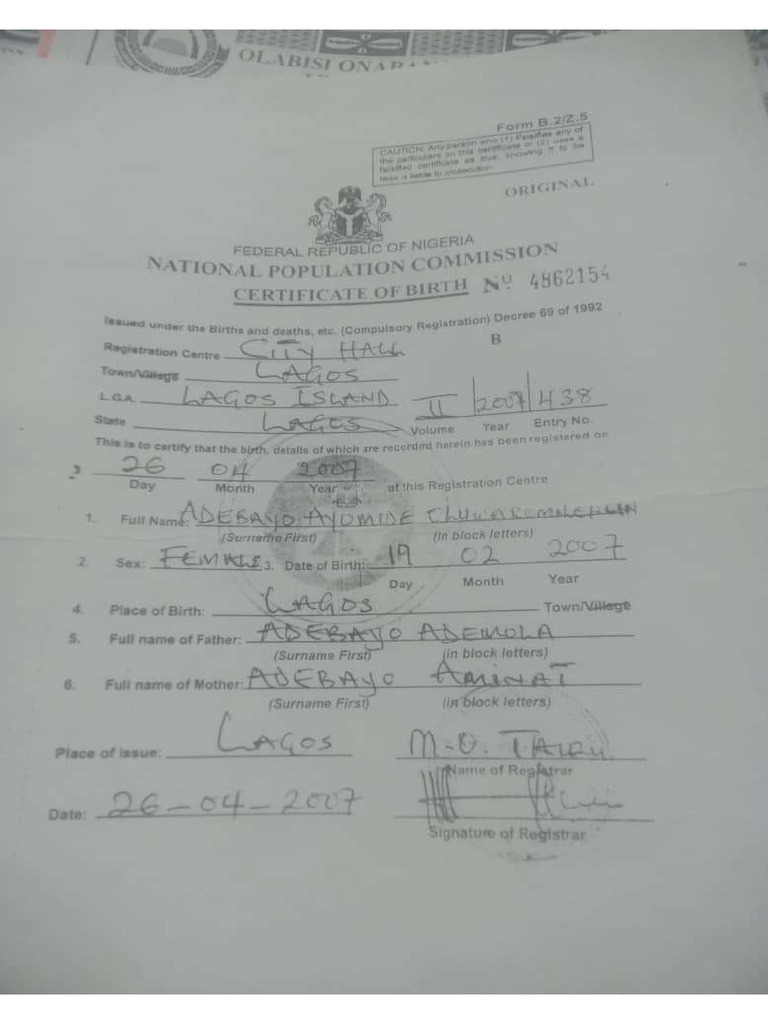 OLABISI ONABA
Form B.2/Z.5
CAUTION: Any person who (1) Falsifies any of
the particulars on this certificate or (2) uses a
falsified certificate as true, knowing it to be
false is liable to prosecution
ORIGINAL
FEDERAL REPUBLIC OF NIGERIA
NATIONAL POPULATION COMMISSION
CERTIFICATE OF BIRTH Nº 4862154
Issued under the Births and deaths, etc. (Compulsory Registration) Decree 69 of 1992
B
Registration Centre CITY HALL
Town/Village LAGOS
L.G.A. LAGOS ISLAND II 2007 438
State LAGOS Volume Year Entry No.
This is to certify that the birth, details of which are recorded herein has been registered on
26 04 2007 at this Registration Centre
Day Month Year
1. Full Name: ADEBAYO AYOMIDE
(Surname First) (In block letters)
2. Sex: FEMALE 3. Date of Birth: 19 02 2007
Day Month Year
4. Place of Birth: LAGOS Town/Village
5. Full name of Father: ADEBAYO ADEMOLA
(Surname First) (in block letters)
6. Full name of Mother: ADEBAYO AMINAT
(Surname First) (in block letters)
Place of issue: LAGOS M.O.
Name of Registrar
Date: 26-04-2007
Signature of Registrar